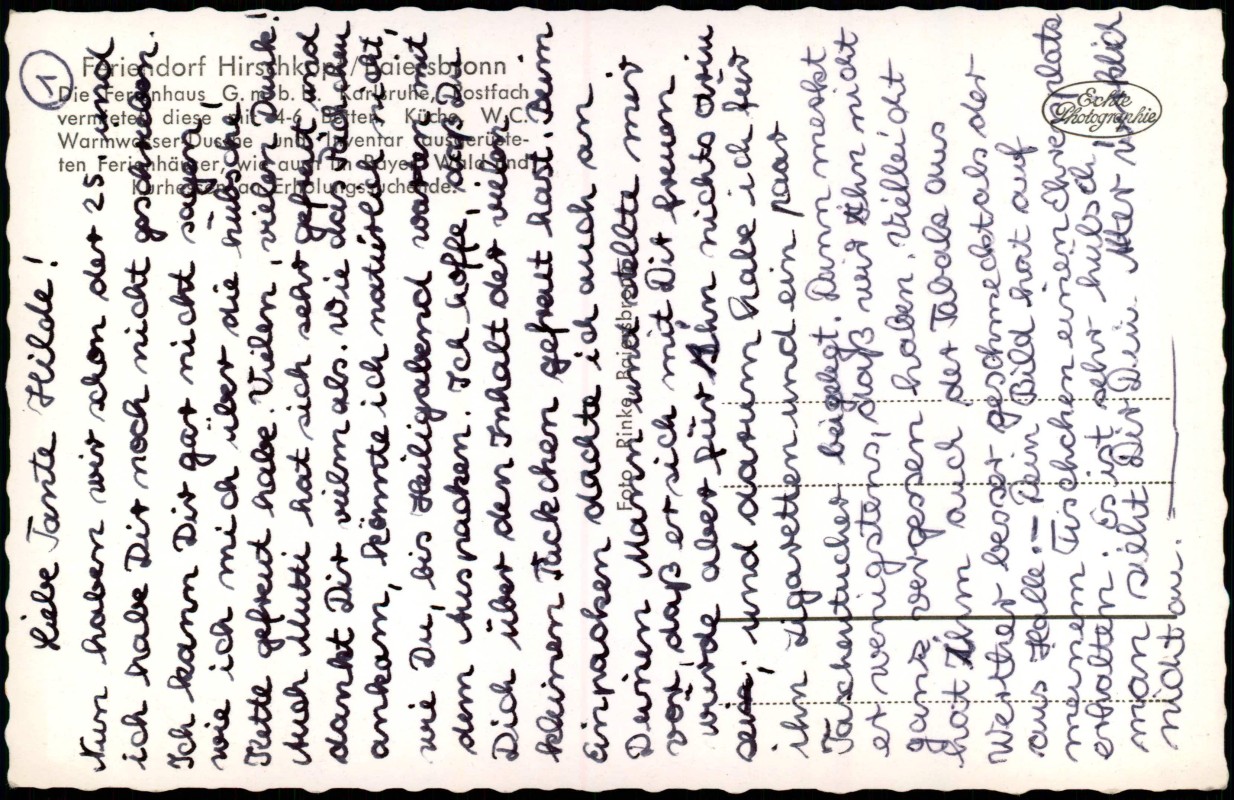 ①
Feriendorf Hirschkopf/Baiersbronn
Die Ferienhaus G. m. b. H. Karlsruhe, Postfach
vermietet diese mit 4-6 Betten, Küche, W.C.
Warmwasser-Dusche und Inventar ausgerüste-
ten Ferienhäuser, wie auch im Bayer. Wald und
Kurhessen an Erholungssuchende.
Echte
Photographie
Foto Rinke Baiersbronn
Liebe Tante Hilde!
Nun haben wir schon der 25. und
ich habe Dir noch nicht geschrieben.
Ich kann Dir gar nicht sagen,
wie ich mich über die hübsche
Kette gefreut habe. Vielen, vielen Dank!
Auch Mutti hat sich sehr gefreut und
dankt Dir vielmals. Wie das Päckchen
ankam, konnte ich natürlich nicht,
wie Du, bis Heiligabend warten mit
dem Auspacken. Ich hoffe, daß Du
Dich über den Inhalt der vielen
kleinen Päckchen gefreut hast. Beim
Einpacken dachte ich auch an
Deinen Mann und stellte mir
vor, daß er sich mit Dir freuen
würde aber für Ihn nichts drin
sei, und darum habe ich für
ihn Zigaretten und ein paar
Taschentücher beigelegt. Dann merkt
er wenigstens, daß wir Ihn nicht
ganz vergessen haben. Vielleicht
hat Ihm auch der Tabak aus
Werther besser geschmeckt als der
aus Halle. – Dein Bild hat auf
meinem Tischchen einen Ehrenplatz
erhalten. Es ist sehr hübsch,
man sieht Dir Dein Alter wirklich
nicht an. –